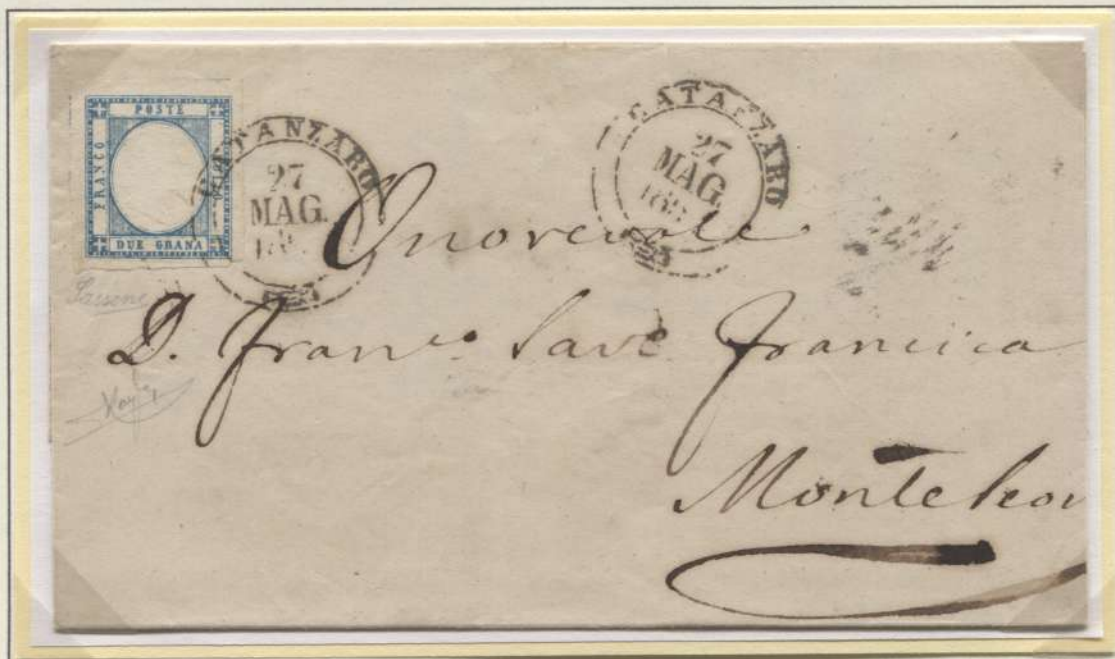 POSTE
FRANCO
DUE GRANA
CATANZARO
27
MAG.
CATANZARO
27
MAG.
186
Onorevole
D. Franco. Save. Francica
Monteleon